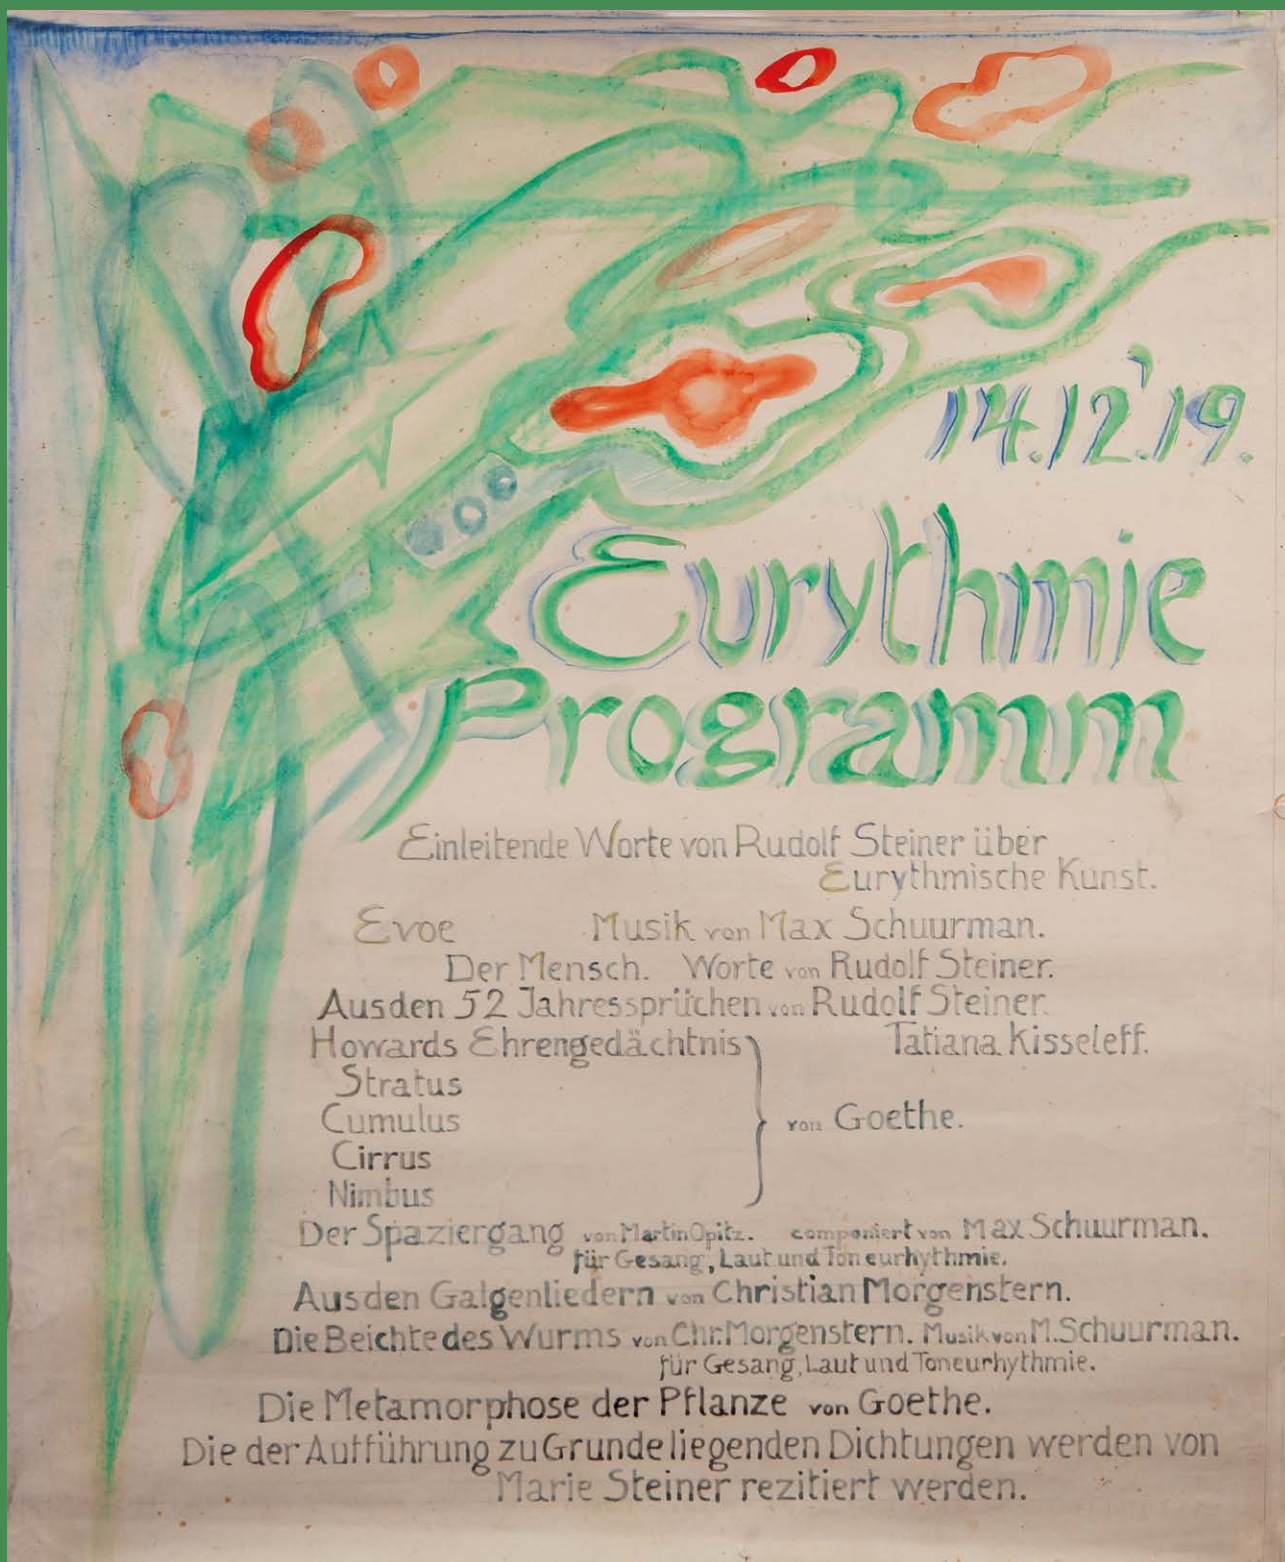 14.12.'19.
Eurythmie
Programm
Einleitende Worte von Rudolf Steiner über
Eurythmische Kunst.
Evoe Musik von Max Schuurman.
Der Mensch. Worte von Rudolf Steiner.
Aus den 52 Jahressprüchen von Rudolf Steiner.
Howards Ehrengedächtnis Tatiana Kisseleff.
Stratus
Cumulus von Goethe.
Cirrus
Nimbus
Der Spaziergang von Martin Opitz. componiert von Max Schuurman.
für Gesang, Laut und Toneurhythmie.
Aus den Galgenliedern von Christian Morgenstern.
Die Beichte des Wurms von Chr. Morgenstern. Musik von M. Schuurman.
für Gesang, Laut und Toneurhythmie.
Die Metamorphose der Pflanze von Goethe.
Die der Aufführung zu Grunde liegenden Dichtungen werden von
Marie Steiner rezitiert werden.